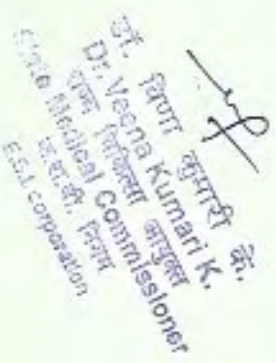 डॉ. विणा कुमारी के.
Dr. Veena Kumari K.
राज्य चिकित्सा आयुक्त
State Medical Commissioner
क.रा.बी. निगम
E.S.I. corporation